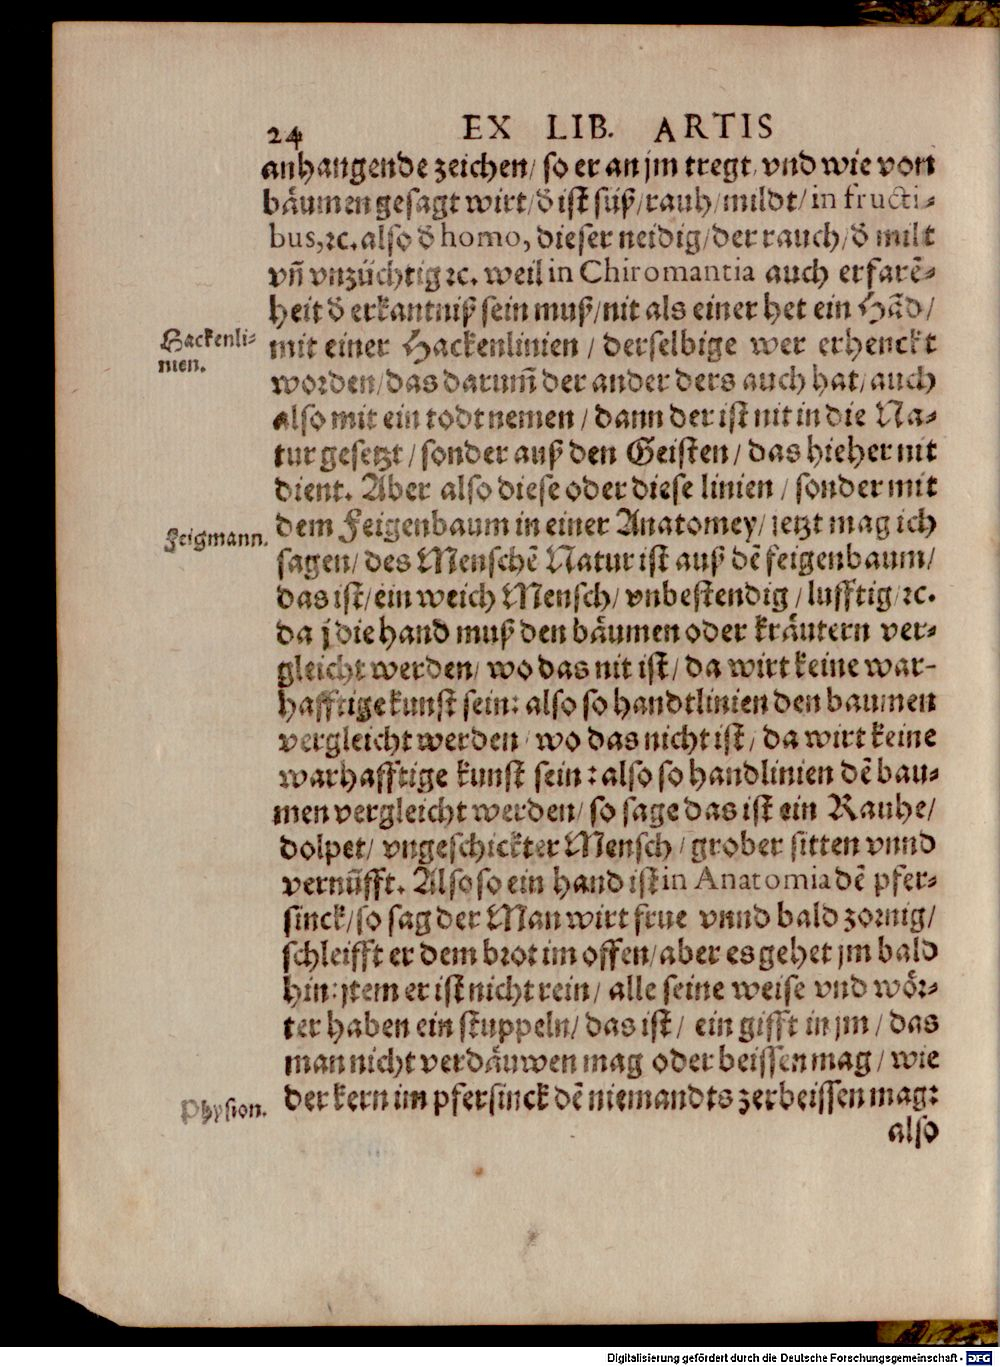 24 EX LIB. ARTIS
anhangende zeichen/ so er an jm tregt, vnd wie von
bäumen gesagt wirt/ð ist süß/rauh/mildt/in fructi-
bus,ꝛc. also ð homo, dieser neidig/der rauch/ð milt
vñ vnzüchtig ꝛc. weil in Chiromantia auch erfarẽ-
heit ð erkantniß sein muß/nit als einer het ein Hãd/
Hackenli-
nien.
mit einer Hackenlinien / derselbige wer erhenckt
worden/das darum̃ der ander ders auch hat/auch
also mit ein todt nemen / dann der ist nit in die Na-
tur gesetzt / sonder auß den Geisten / das hieher nit
dient. Aber also diese oder diese linien / sonder mit
Feigmann.
dem Feigenbaum in einer Anatomey/ jetzt mag ich
sagen/ des Menschẽ Natur ist auß dẽ feigenbaum/
das ist/ein weich Mensch/ vnbestendig / lufftig/ꝛc.
da j die hand muß den bäumen oder kräutern ver-
gleicht werden/ wo das nit ist/ da wirt keine war-
hafftige kunst sein: also so handtlinien den baumen
vergleicht werden/ wo das nicht ist/ da wirt keine
warhafftige kunst sein : also so handlinien dẽ bau-
men vergleicht werden/ so sage das ist ein Rauhe/
dolpet/ vngeschickter Mensch / grober sitten vnnd
vernũfft. Also so ein hand ist in Anatomia dẽ pfer-
sinck/so sag der Man wirt frue vnnd bald zornig/
schleifft er dem brot im offen/aber es gehet jm bald
hin: jtem er ist nicht rein/ alle seine weise vnd wör-
ter haben ein stuppeln/ das ist / ein gifft in jm / das
man nicht verdäuwen mag oder beissen mag / wie
Physion.
der kern im pfersinck dẽ niemandts zerbeissen mag:
also
Digitalisierung gefördert durch die Deutsche Forschungsgemeinschaft - DFG